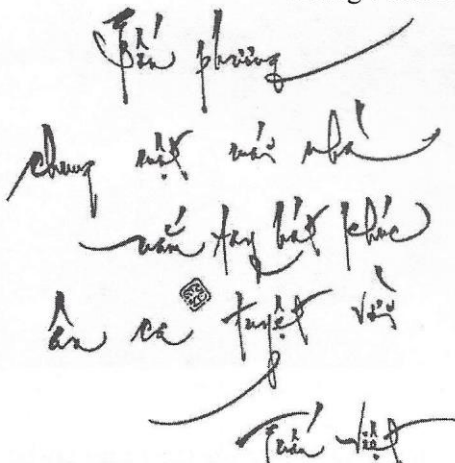 Bốn phương
chung một mái nhà
nắm tay hát khúc
ân ca tuyệt vời
Tuấn Việt